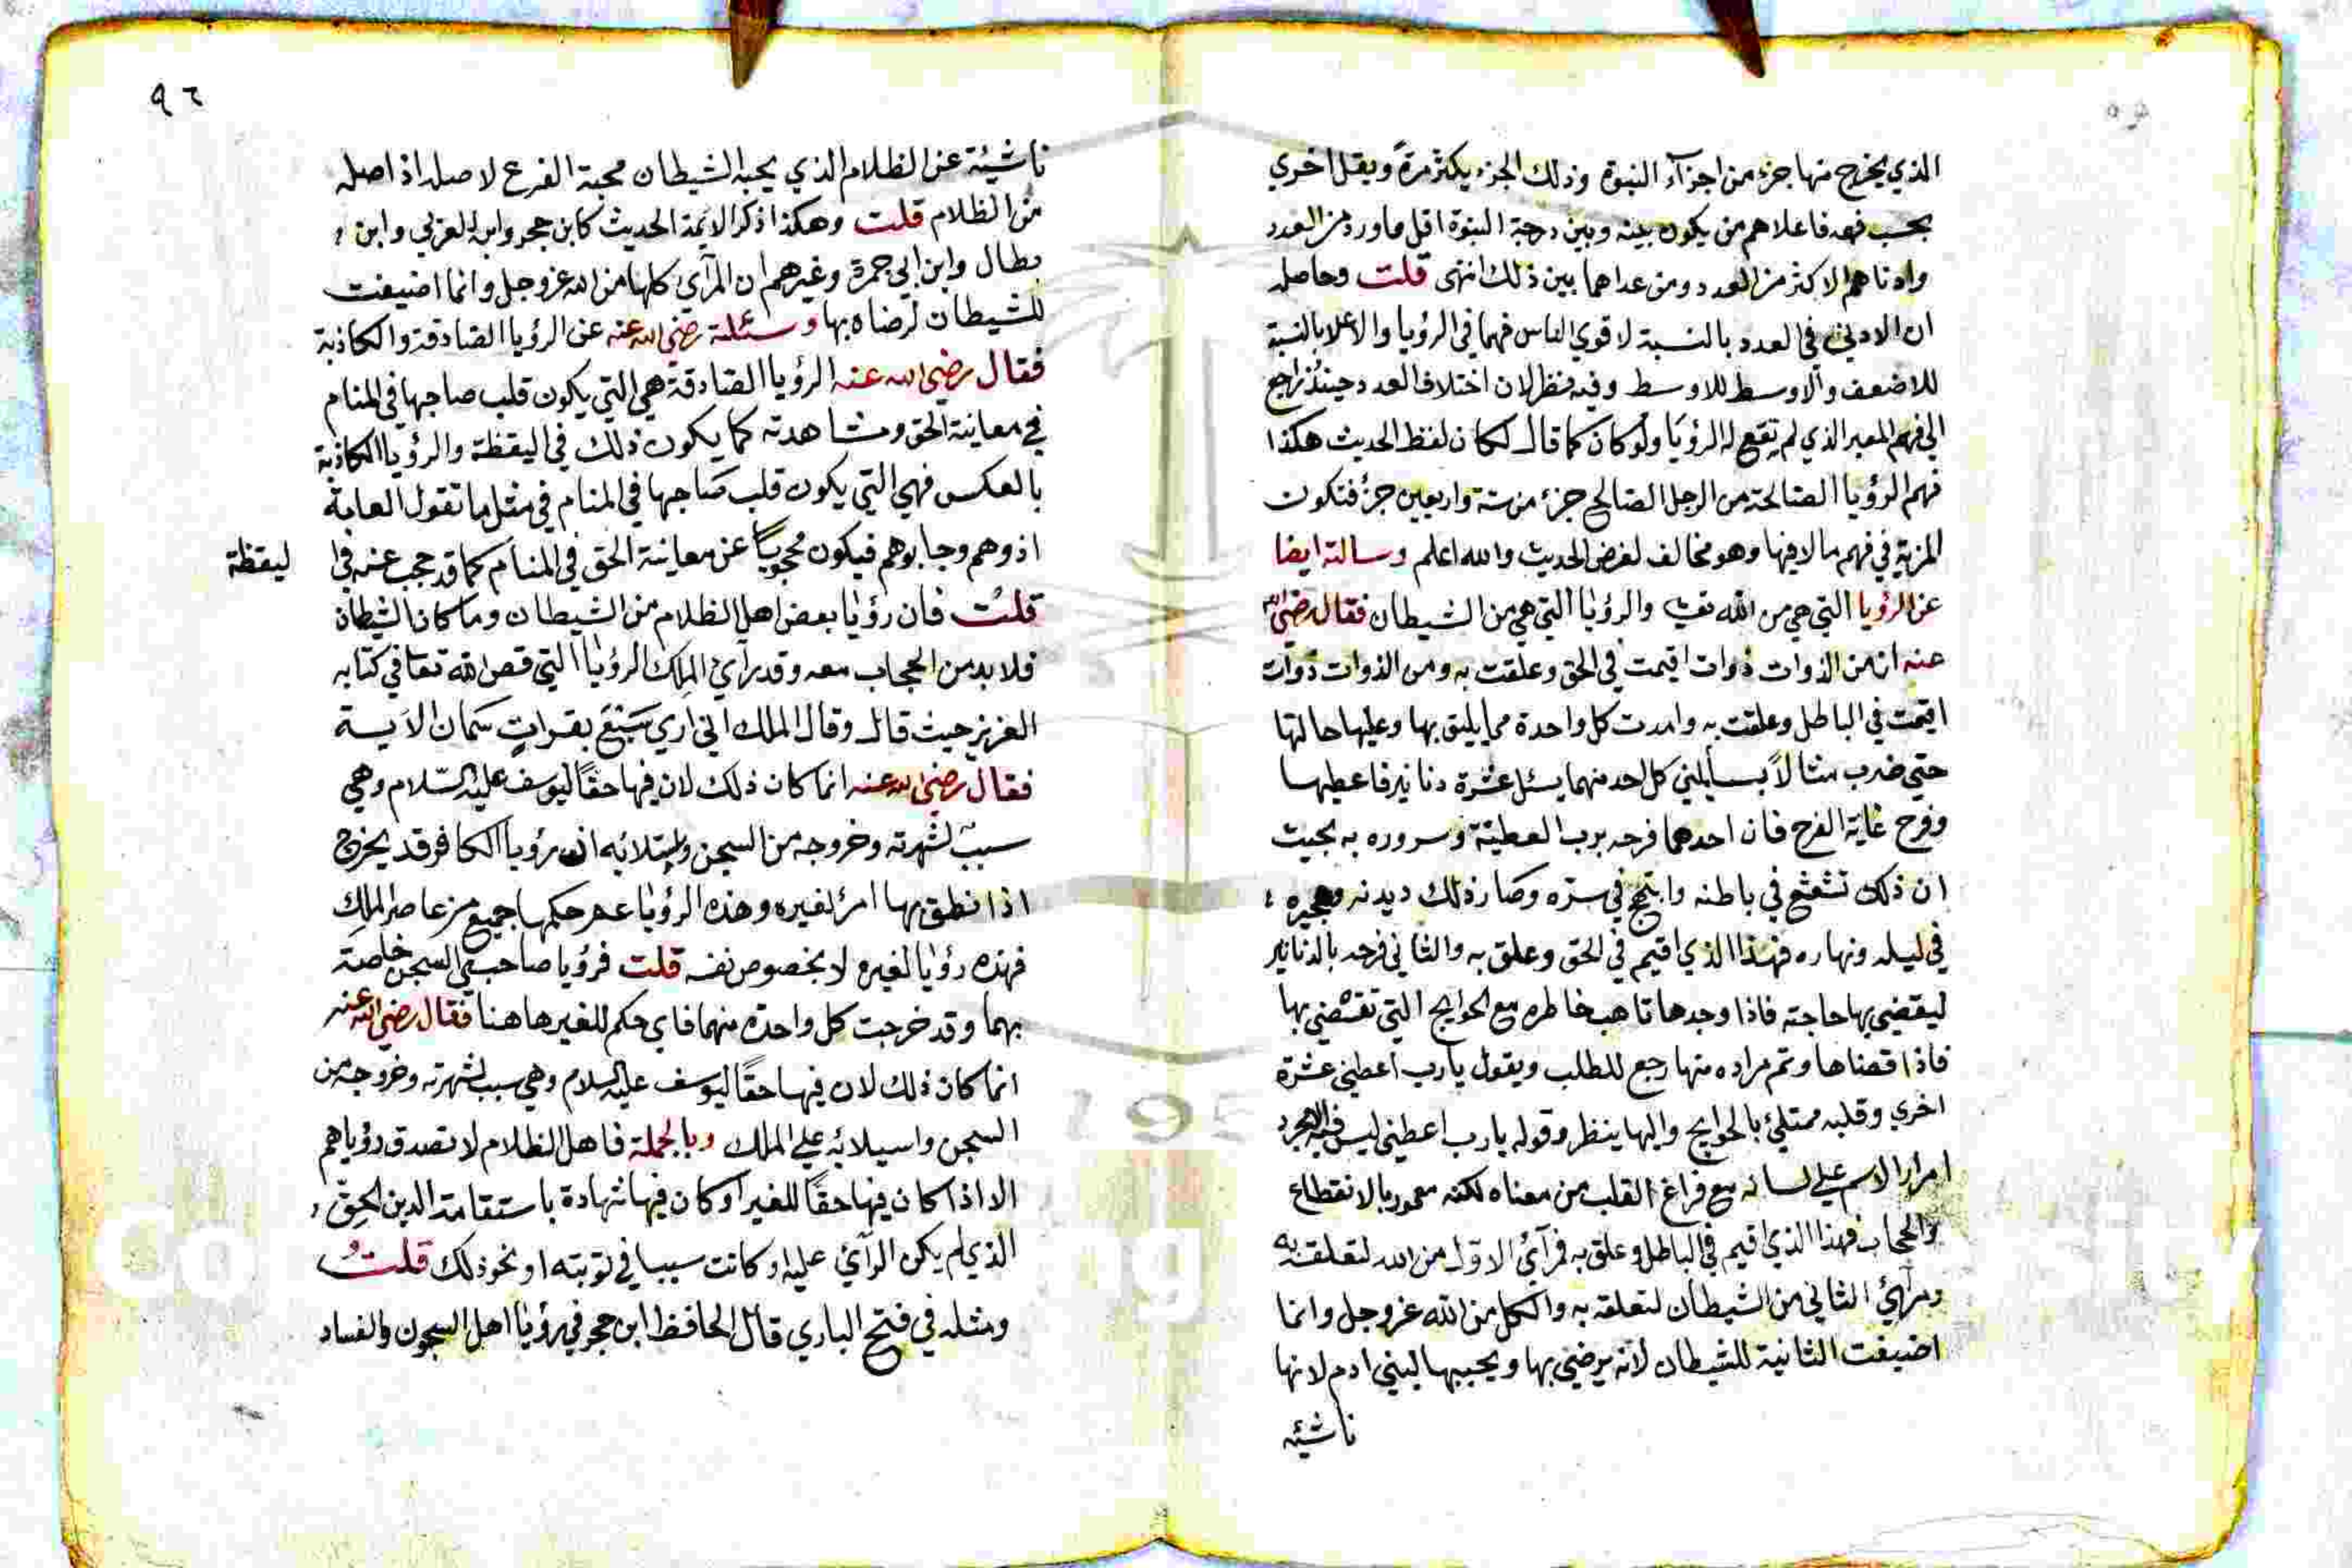 الذي يخرج منها جزء من اجزآء النبوة وذلك الجزء يكثر مرةً ويقل اخري
بحسب فهمه فاعلاهم من يكون بينه وبين درجة النبوة اقل ما ورد من العدد
وادناهم الاكثر من العدد ومن عداهما بين ذلك انتهى قلت وحاصله
ان الادنى في العدد بالنسبة لاقوي الناس فهما في الرؤيا والاعلا بالنسبة
للاضعف والاوسط للاوسط وفيه نظر لان اختلاف العدد حينئذ راجع
الي فهم المعبر الذي لم تقع له الرؤيا ولو كان كما قال لكان لفظ الحديث هكذا
فهم الرؤيا الصالحة من الرجل الصالح جزء من ستة واربعين جزءً فتكون
المزية في فهم ما لا فيها وهو مخالف لغرض الحديث والله اعلم وسالته ايضا
عن الرؤيا التي هي من الله والرؤيا التي هي من الشيطان فقال رضي الله
عنه ان من الذوات ذوات اقيمت في الحق وعلقت به ومن الذوات ذوات
اقيمت في الباطل وعلقت به وامدت كل واحدة مما يليق بها وعليها حالتها
حتي ضرب مثالاً بسايلين كل احد منهما يسئل عشرة دنانير فاعطيها
وفرح غاية الفرح فان احدهما فرحه برب العطية وسروره به بحيث
ان ذلك في باطنه في سره وصار ذلك ديدنه وهجيره
في ليله ونهاره فهذا الذي اقيم في الحق وعلق به والثاني فرحه بالدنانير
ليقضي بها حاجته فاذا وجدها خاطره مع الحوايج التي تقضي بها
فاذا قضاها وتم مراده منها رجع للطلب ويقول يارب اعطني عشرة
اخري وقلبه ممتلئ بالحوايج واليها ينظر وقوله يارب اعطني ليس
امرار الاسم علي لسانه مع فراغ القلب من معناه لكنه معمور بالانقطاع
والحجاب فهذا الذي اقيم في الباطل وعلق به فمرآئي الاول من الله لتعلقه به
ومرآئي الثاني من الشيطان لتعلقه به والكل من الله عز وجل وانما
اضيفت الثانية للشيطان لانه يرضي بها ويحببها لبني ادم لانها
ناشئه
٩٦
ناشيئة عن الظلام الذي يحبه الشيطان محبة الفرع لاصله اذ اصله
من الظلام قلت وهكذا ذكر الايمة الحديث كابن حجر وابن العربي وابن
بطال وابن ابي جمرة وغيرهم ان المرآى كلها من الله عز وجل وانما اضيفت
للشيطان لرضاه بها وسئلته رضي الله عنه عن الرؤيا الصادقة والكاذبة
فقال رضي الله عنه الرؤيا الصادقة هي التي يكون قلب صاحبها في المنام
في معاينة الحق ومشاهدته كما يكون ذلك في اليقظة والرؤيا الكاذبة
بالعكس فهي التي يكون قلب صاحبها في المنام في مثل ما تقول العامة
اذوهم وجابوهم فيكون محجوباً عن معاينة الحق في المنام كما قد حجب عنه في ا
ليقظة
قلت فان رؤيا بعض اهل الظلام من الشيطان وما كان للشيطان
فلا بد من الحجاب معه وقد رآي الملك الرؤيا التي قص الله تعا في كتابه
العزيز حيث قال وقال الملك اني اري سَبْعَ بقراتٍ سمان الاية
فقال رضي الله عنه انما كان ذلك لان فيها حقًا ليوسف عليه السّلام وهي
سبب لشهرته وخروجه من السجن وان رؤيا الكافر قد يخرج
اذا نطق بها امر لغيره وهذه الرؤيا عم حكمها جميع من عاصر الملك
فهذه رؤيا لغيره لا بخصوص نفسه قلت فرؤيا صاحبي السجن خاصة
بهما وقد خرجت كل واحدة منهما فاي حكم للغير هاهنا فقال رضي الله عنه
انما كان ذلك لان فيها حقًا ليوسف عليه السلام وهي سبب لشهرته وخروجه من
السجن واسيلائه علي الملك وبالجملة فاهل الظلام لا تصدق رؤياهم
الا اذا كان فيها حقًا للغير او كان فيها شهادة باستقامة الدين الحق
الذي لم يكن الرآئي عليه او كانت سببا في توبته او نحو ذلك قلتُ
ومثله في فتح الباري قال الحافظ ابن حجر في رؤيا اهل السجون والفساد